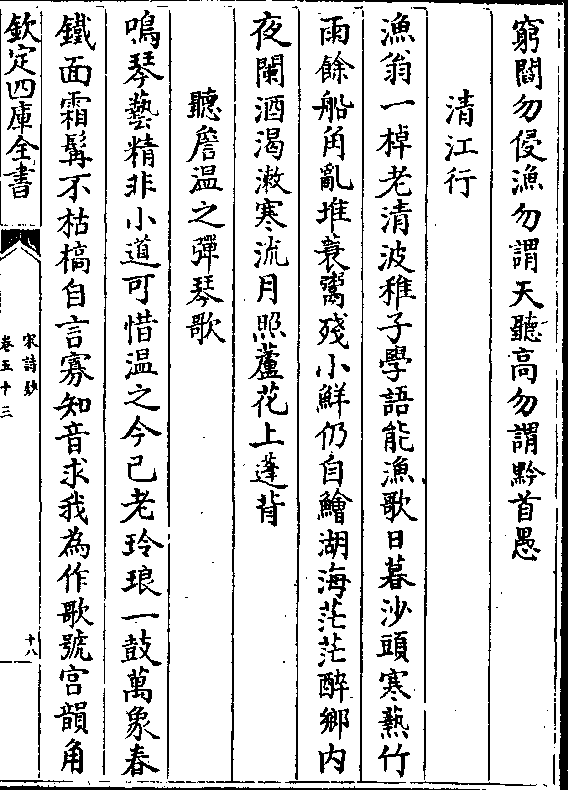 窮閻勿侵漁勿謂天聽高勿謂黔首愚
清江行
漁翁一棹老清波稚子學語能漁歌日暮沙頭寒爇竹
雨餘船角亂堆蓑鬻殘小鮮仍自鱠湖海茫茫醉鄉内
夜闌酒渴漱寒流月照蘆花上蓬背
聽詹温之彈琴歌
鳴琴藝精非小道可惜温之今已老玲琅一鼓萬象春
鐵面霜髯不枯槁自言寡知音求我為作歌號宫韻角
欽定四庫全書
宋詩鈔
卷五十三
十八